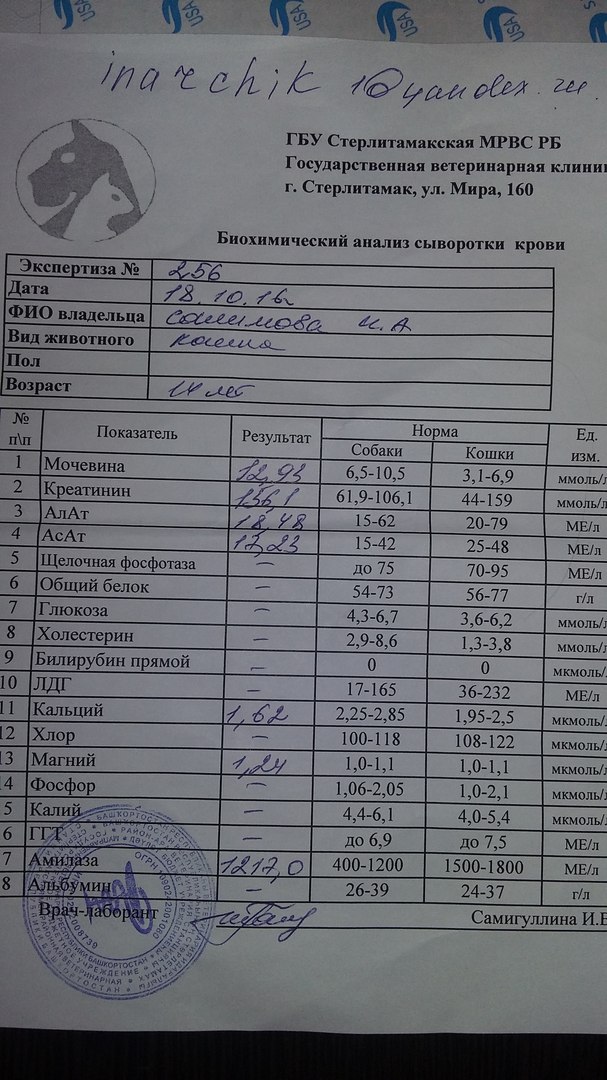 inarchik 10yandex.ru
ГБУ Стерлитамакская МРВС РБ
Государственная ветеринарная клини
г. Стерлитамак, ул. Мира, 160
Биохимический анализ сыворотки крови
Экспертиза № 256
Дата 18.10.16г
ФИО владельца И.А
Вид животного кошка
Пол
Возраст 14 лет
№ п\п Показатель Результат Норма Ед. изм.
Собаки Кошки
1 Мочевина 12,93 6,5-10,5 3,1-6,9 ммоль/л
2 Креатинин 156,1 61,9-106,1 44-159 ммоль/л
3 АлАт 18,48 15-62 20-79 МЕ/л
4 АсАт 17,23 15-42 25-48 МЕ/л
5 Щелочная фосфотаза – до 75 70-95 МЕ/л
6 Общий белок – 54-73 56-77 г/л
7 Глюкоза – 4,3-6,7 3,6-6,2 ммоль/л
8 Холестерин – 2,9-8,6 1,3-3,8 ммоль/л
9 Билирубин прямой – 0 0 мкмоль/
10 ЛДГ – 17-165 36-232 МЕ/л
11 Кальций 1,62 2,25-2,85 1,95-2,5 мкмоль/
12 Хлор – 100-118 108-122 мкмоль/
13 Магний 1,24 1,0-1,1 1,0-1,1 мкмоль/
14 Фосфор – 1,06-2,05 1,0-2,1 мкмоль/
5 Калий – 4,4-6,1 4,0-5,4 мкмоль/
6 ГГТ – до 6,9 до 7,5 МЕ/л
7 Амилаза 1217,0 400-1200 1500-1800 МЕ/л
8 Альбумин – 26-39 24-37 г/л
Врач-лаборант Самигуллина И.В